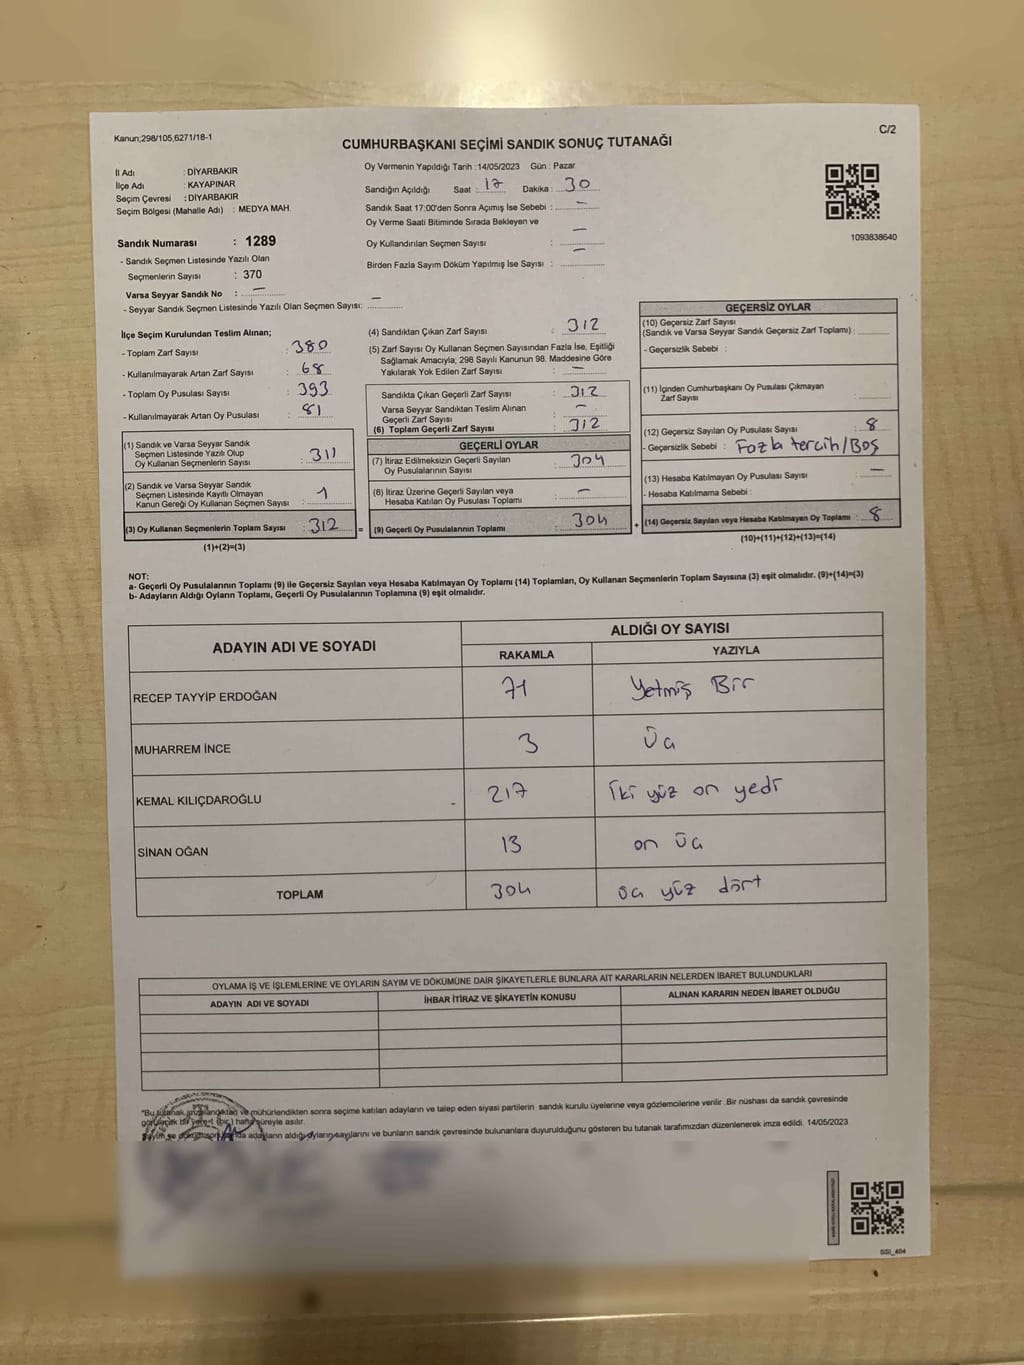 Kanun;298/105,6271/18-1
C/2
CUMHURBAŞKANI SEÇİMİ SANDIK SONUÇ TUTANAĞI
İl Adı : DİYARBAKIR
İlçe Adı : KAYAPINAR
Seçim Çevresi : DİYARBAKIR
Seçim Bölgesi (Mahalle Adı) : MEDYA MAH.
Oy Vermenin Yapıldığı Tarih : 14/05/2023 Gün : Pazar
Sandığın Açıldığı Saat : 17 Dakika : 30
Sandık Saat 17:00'den Sonra Açımış İse Sebebi : –
Oy Verme Saati Bitiminde Sırada Bekleyen ve
Oy Kullandırılan Seçmen Sayısı : –
Birden Fazla Sayım Döküm Yapılmış İse Sayısı : –
1093838640
Sandık Numarası : 1289
- Sandık Seçmen Listesinde Yazılı Olan
Seçmenlerin Sayısı : 370
Varsa Seyyar Sandık No : –
- Seyyar Sandık Seçmen Listesinde Yazılı Olan Seçmen Sayısı: –
İlçe Seçim Kurulundan Teslim Alınan;
- Toplam Zarf Sayısı : 380
- Kullanılmayarak Artan Zarf Sayısı : 68
- Toplam Oy Pusulası Sayısı : 393
- Kullanılmayarak Artan Oy Pusulası : 81
(1) Sandık ve Varsa Seyyar Sandık
Seçmen Listesinde Yazılı Olup
Oy Kullanan Seçmenlerin Sayısı : 311
(2) Sandık ve Varsa Seyyar Sandık
Seçmen Listesinde Kayıtlı Olmayan
Kanun Gereği Oy Kullanan Seçmen Sayısı : 1
(3) Oy Kullanan Seçmenlerin Toplam Sayısı : 312 =
(1)+(2)=(3)
(4) Sandıktan Çıkan Zarf Sayısı : 312
(5) Zarf Sayısı Oy Kullanan Seçmen Sayısından Fazla İse, Eşitliği
Sağlamak Amacıyla; 298 Sayılı Kanunun 98. Maddesine Göre
Yakılarak Yok Edilen Zarf Sayısı : –
Sandıkta Çıkan Geçerli Zarf Sayısı : 312
Varsa Seyyar Sandıktan Teslim Alınan
Geçerli Zarf Sayısı : –
(6) Toplam Geçerli Zarf Sayısı : 312
GEÇERLİ OYLAR
(7) İtiraz Edilmeksizin Geçerli Sayılan
Oy Pusulalarının Sayısı : 304
(8) İtiraz Üzerine Geçerli Sayılan veya
Hesaba Katılan Oy Pusulası Toplamı : –
(9) Geçerli Oy Pusulalarının Toplamı : 304 +
GEÇERSİZ OYLAR
(10) Geçersiz Zarf Sayısı
(Sandık ve Varsa Seyyar Sandık Geçersiz Zarf Toplamı) :
- Geçersizlik Sebebi :
(11) İçinden Cumhurbaşkanı Oy Pusulası Çıkmayan
Zarf Sayısı :
(12) Geçersiz Sayılan Oy Pusulası Sayısı : 8
- Geçersizlik Sebebi : Fazla tercih/Boş
(13) Hesaba Katılmayan Oy Pusulası Sayısı : –
- Hesaba Katılmama Sebebi :
(14) Geçersiz Sayılan veya Hesaba Katılmayan Oy Toplamı : 8
(10)+(11)+(12)+(13)=(14)
NOT:
a- Geçerli Oy Pusulalarının Toplamı (9) ile Geçersiz Sayılan veya Hesaba Katılmayan Oy Toplamı (14) Toplamları, Oy Kullanan Seçmenlerin Toplam Sayısına (3) eşit olmalıdır. (9)+(14)=(3)
b- Adayların Aldığı Oyların Toplamı, Geçerli Oy Pusulalarının Toplamına (9) eşit olmalıdır.
ADAYIN ADI VE SOYADI ALDIĞI OY SAYISI
RAKAMLA YAZIYLA
RECEP TAYYİP ERDOĞAN 71 Yetmiş Bir
MUHARREM İNCE 3 Üç
KEMAL KILIÇDAROĞLU 217 İki yüz on yedi
SİNAN OĞAN 13 on üç
TOPLAM 304 üç yüz dört
OYLAMA İŞ VE İŞLEMLERİNE VE OYLARIN SAYIM VE DÖKÜMÜNE DAİR ŞİKAYETLERLE BUNLARA AİT KARARLARIN NELERDEN İBARET BULUNDUKLARI
ADAYIN ADI VE SOYADI İHBAR İTİRAZ VE ŞİKAYETİN KONUSU ALINAN KARARIN NEDEN İBARET OLDUĞU
"Bu tutanak imzalandıktan ve mühürlendikten sonra seçime katılan adayların ve talep eden siyasi partilerin sandık kurulu üyelerine veya gözlemcilerine verilir. Bir nüshası da sandık çevresinde
görülecek bir yere 1 (bir) hafta süreyle asılır.
Sayım ve döküm adayların aldığı oyların sayılarını ve bunların sandık çevresinde bulunanlara duyurulduğunu gösteren bu tutanak tarafımızdan düzenlenerek imza edildi. 14/05/2023
SSI_404